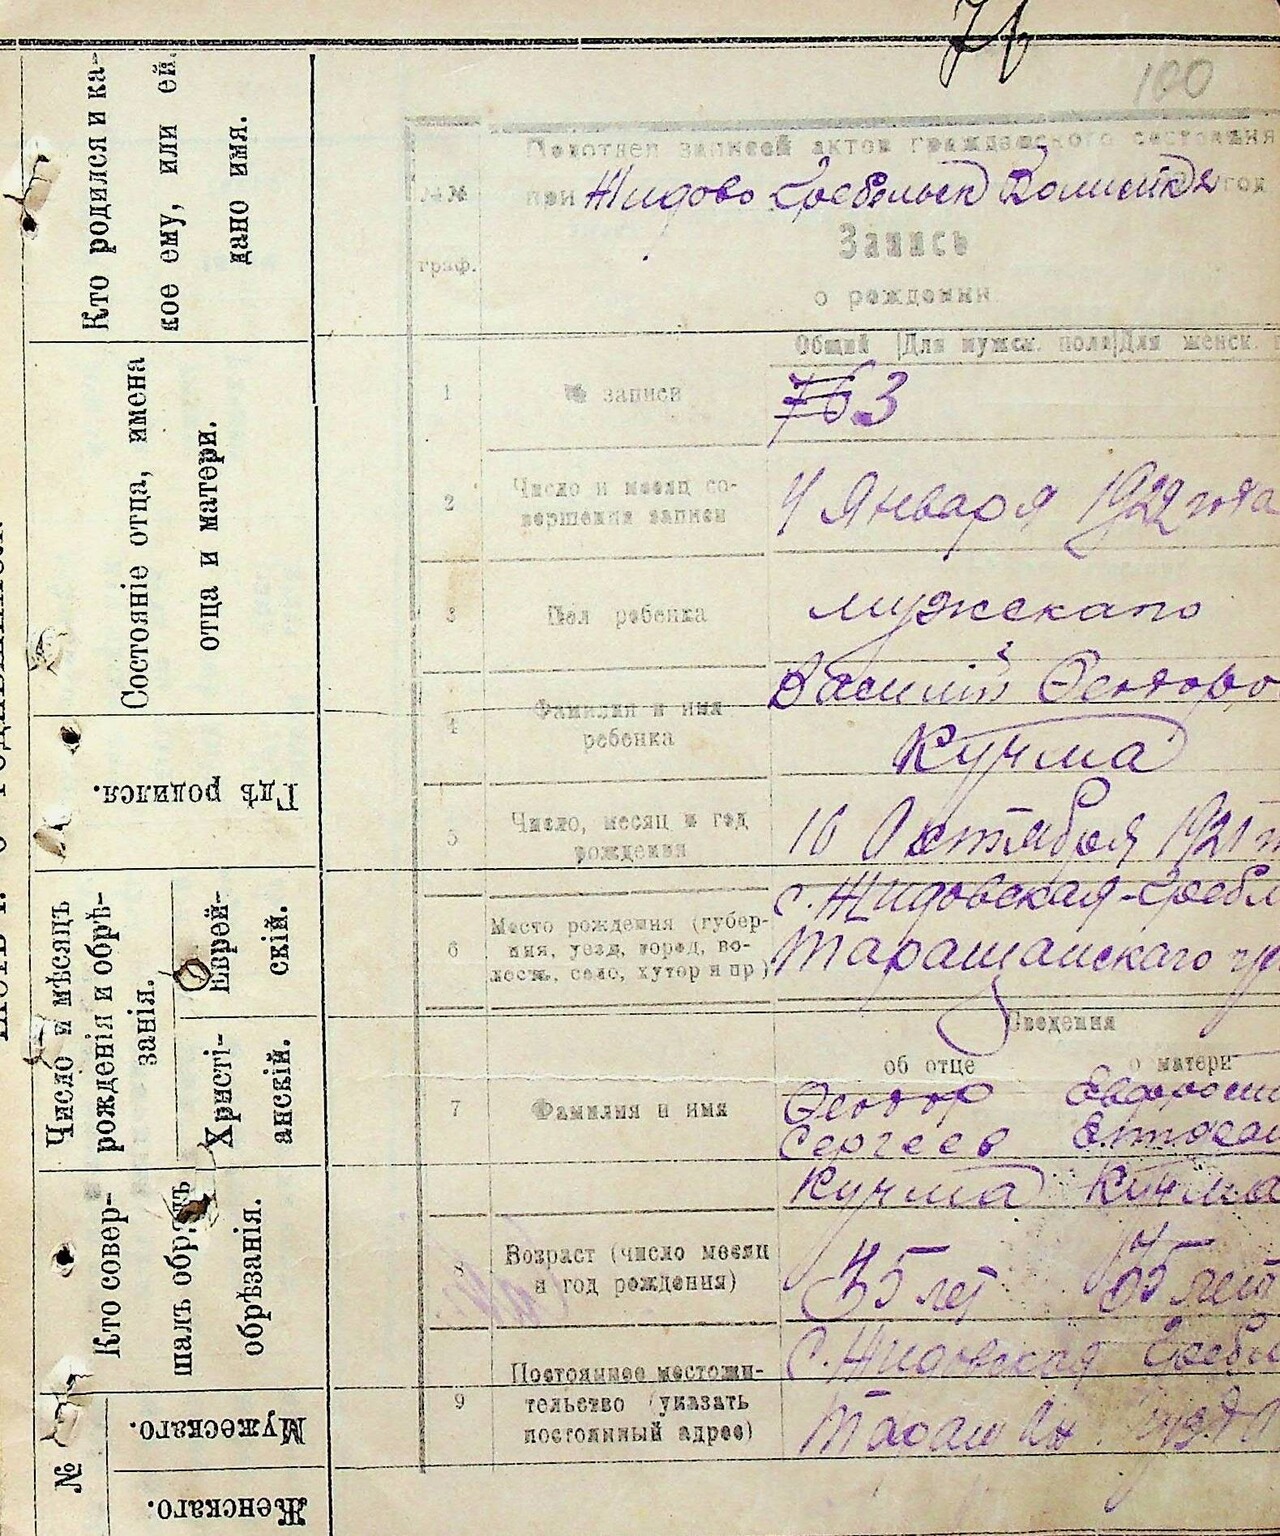 71
100
Кто родился и ка-
кое ему, или ей
дано имя.
Состояніе отца, имена
отца и матери.
Гдѣ родился.
Число и мѣсяцъ
рожденія и обрѣ-
занія.
Еврей-
скій.
Христі-
анскій.
Кто совер-
шалъ обрядъ
обрѣзанія.
№
Мужескаго.
Женскаго.
записей актов гражданского состояния
при Жидово Гребельск год
№№
граф.
Запись
о рождении
Общий Для мужск. пола Для женск.
1 № записи 763
2 Число и месяц со-
вершения записи
4 Января 1922 года
3 Пол ребенка мужскаго
4 Фамилия и имя
ребенка
Василій Феодоро
Кучма
5 Число, месяц и год
рождения
16 Октября 1921
6 Место рождения (губер-
ния, уезд, город, во-
лость, село, хутор и пр)
с. Жидовская-Гребл
Таращанскаго у
Сведения
об отце о матери
7 Фамилия и имя
Феодор
Сергеев
Кучма Кучма
8 Возраст (число месяц
и год рождения)
35 лет 35 лет
9 Постоянное местожи-
тельство (указать
постоянный адрес)
С. Жидовская Гребл
Таращ